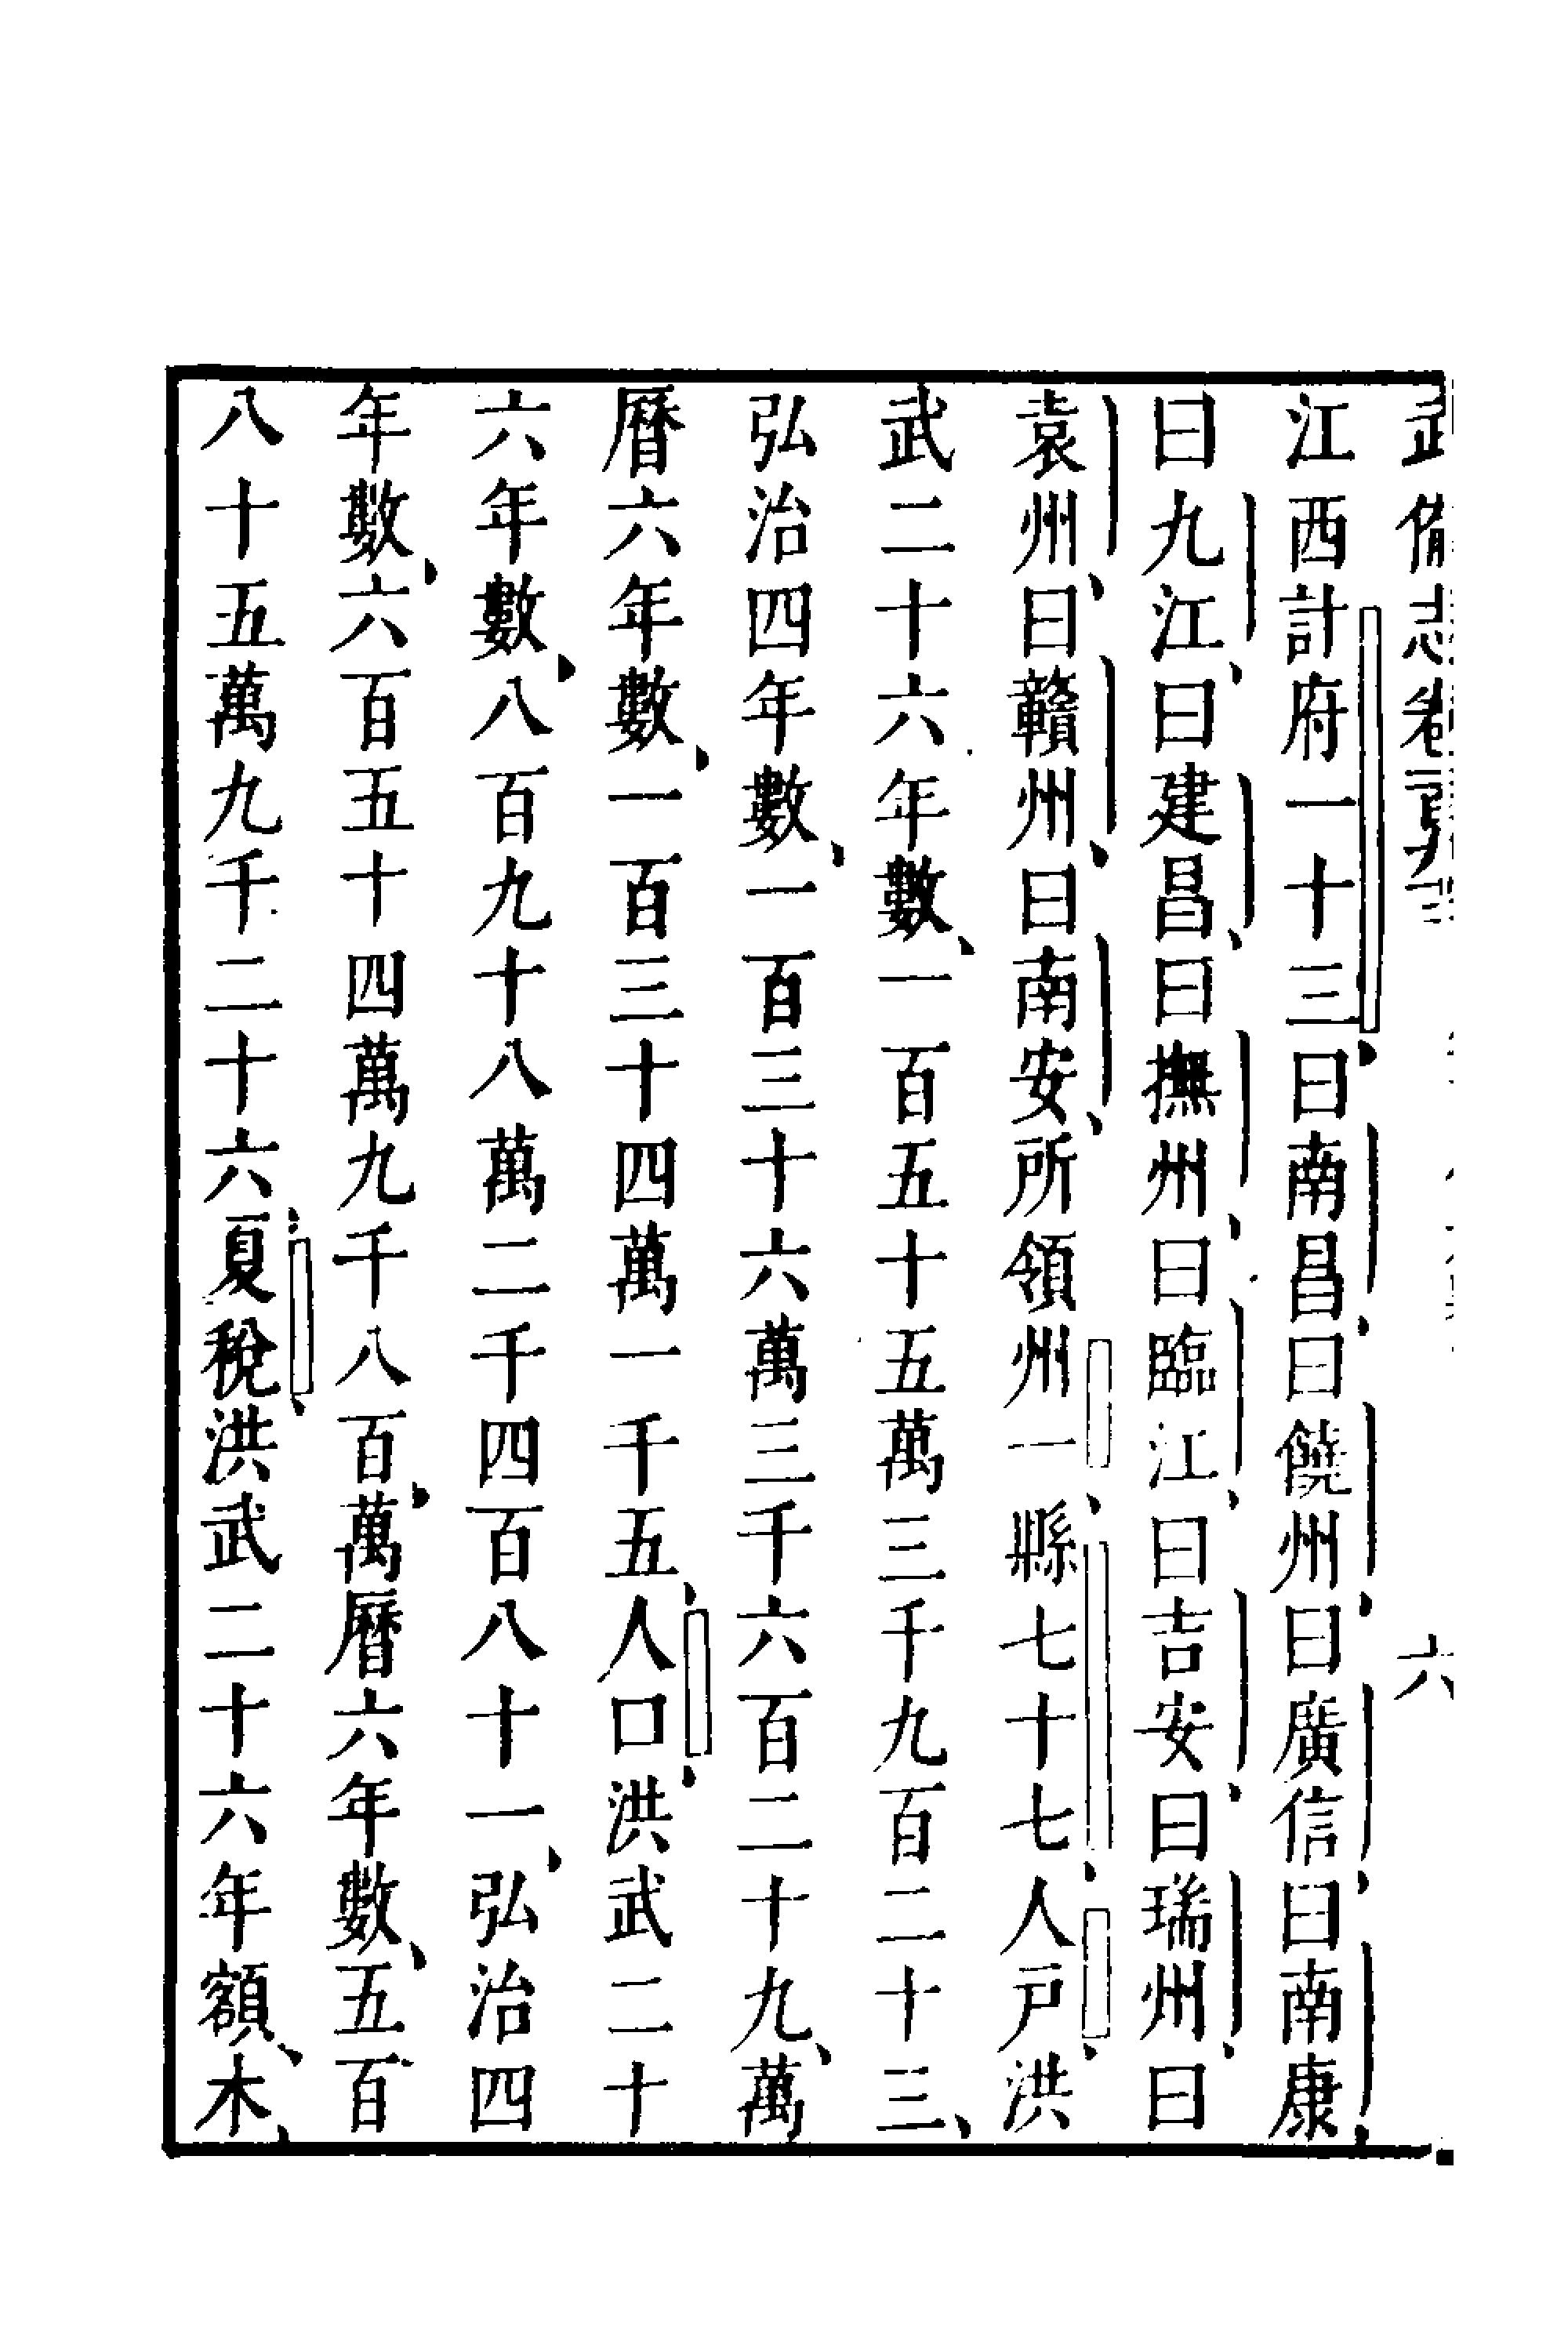 武備志卷 六
江西計府一十三曰南昌曰饒州曰廣信曰南康
曰九江曰建昌曰撫州曰臨江曰吉安曰瑞州曰
袁州曰贛州曰南安所領州一縣七十七人戸洪
武二十六年數一百五十五萬三千九百二十三
弘治四年數一百三十六萬三千六百二十九萬
曆六年數一百三十四萬一千五人口洪武二十
六年數八百九十八萬二千四百八十一弘治四
年數六百五十四萬九千八百萬曆六年數五百
八十五萬九千二十六夏稅洪武二十六年額米